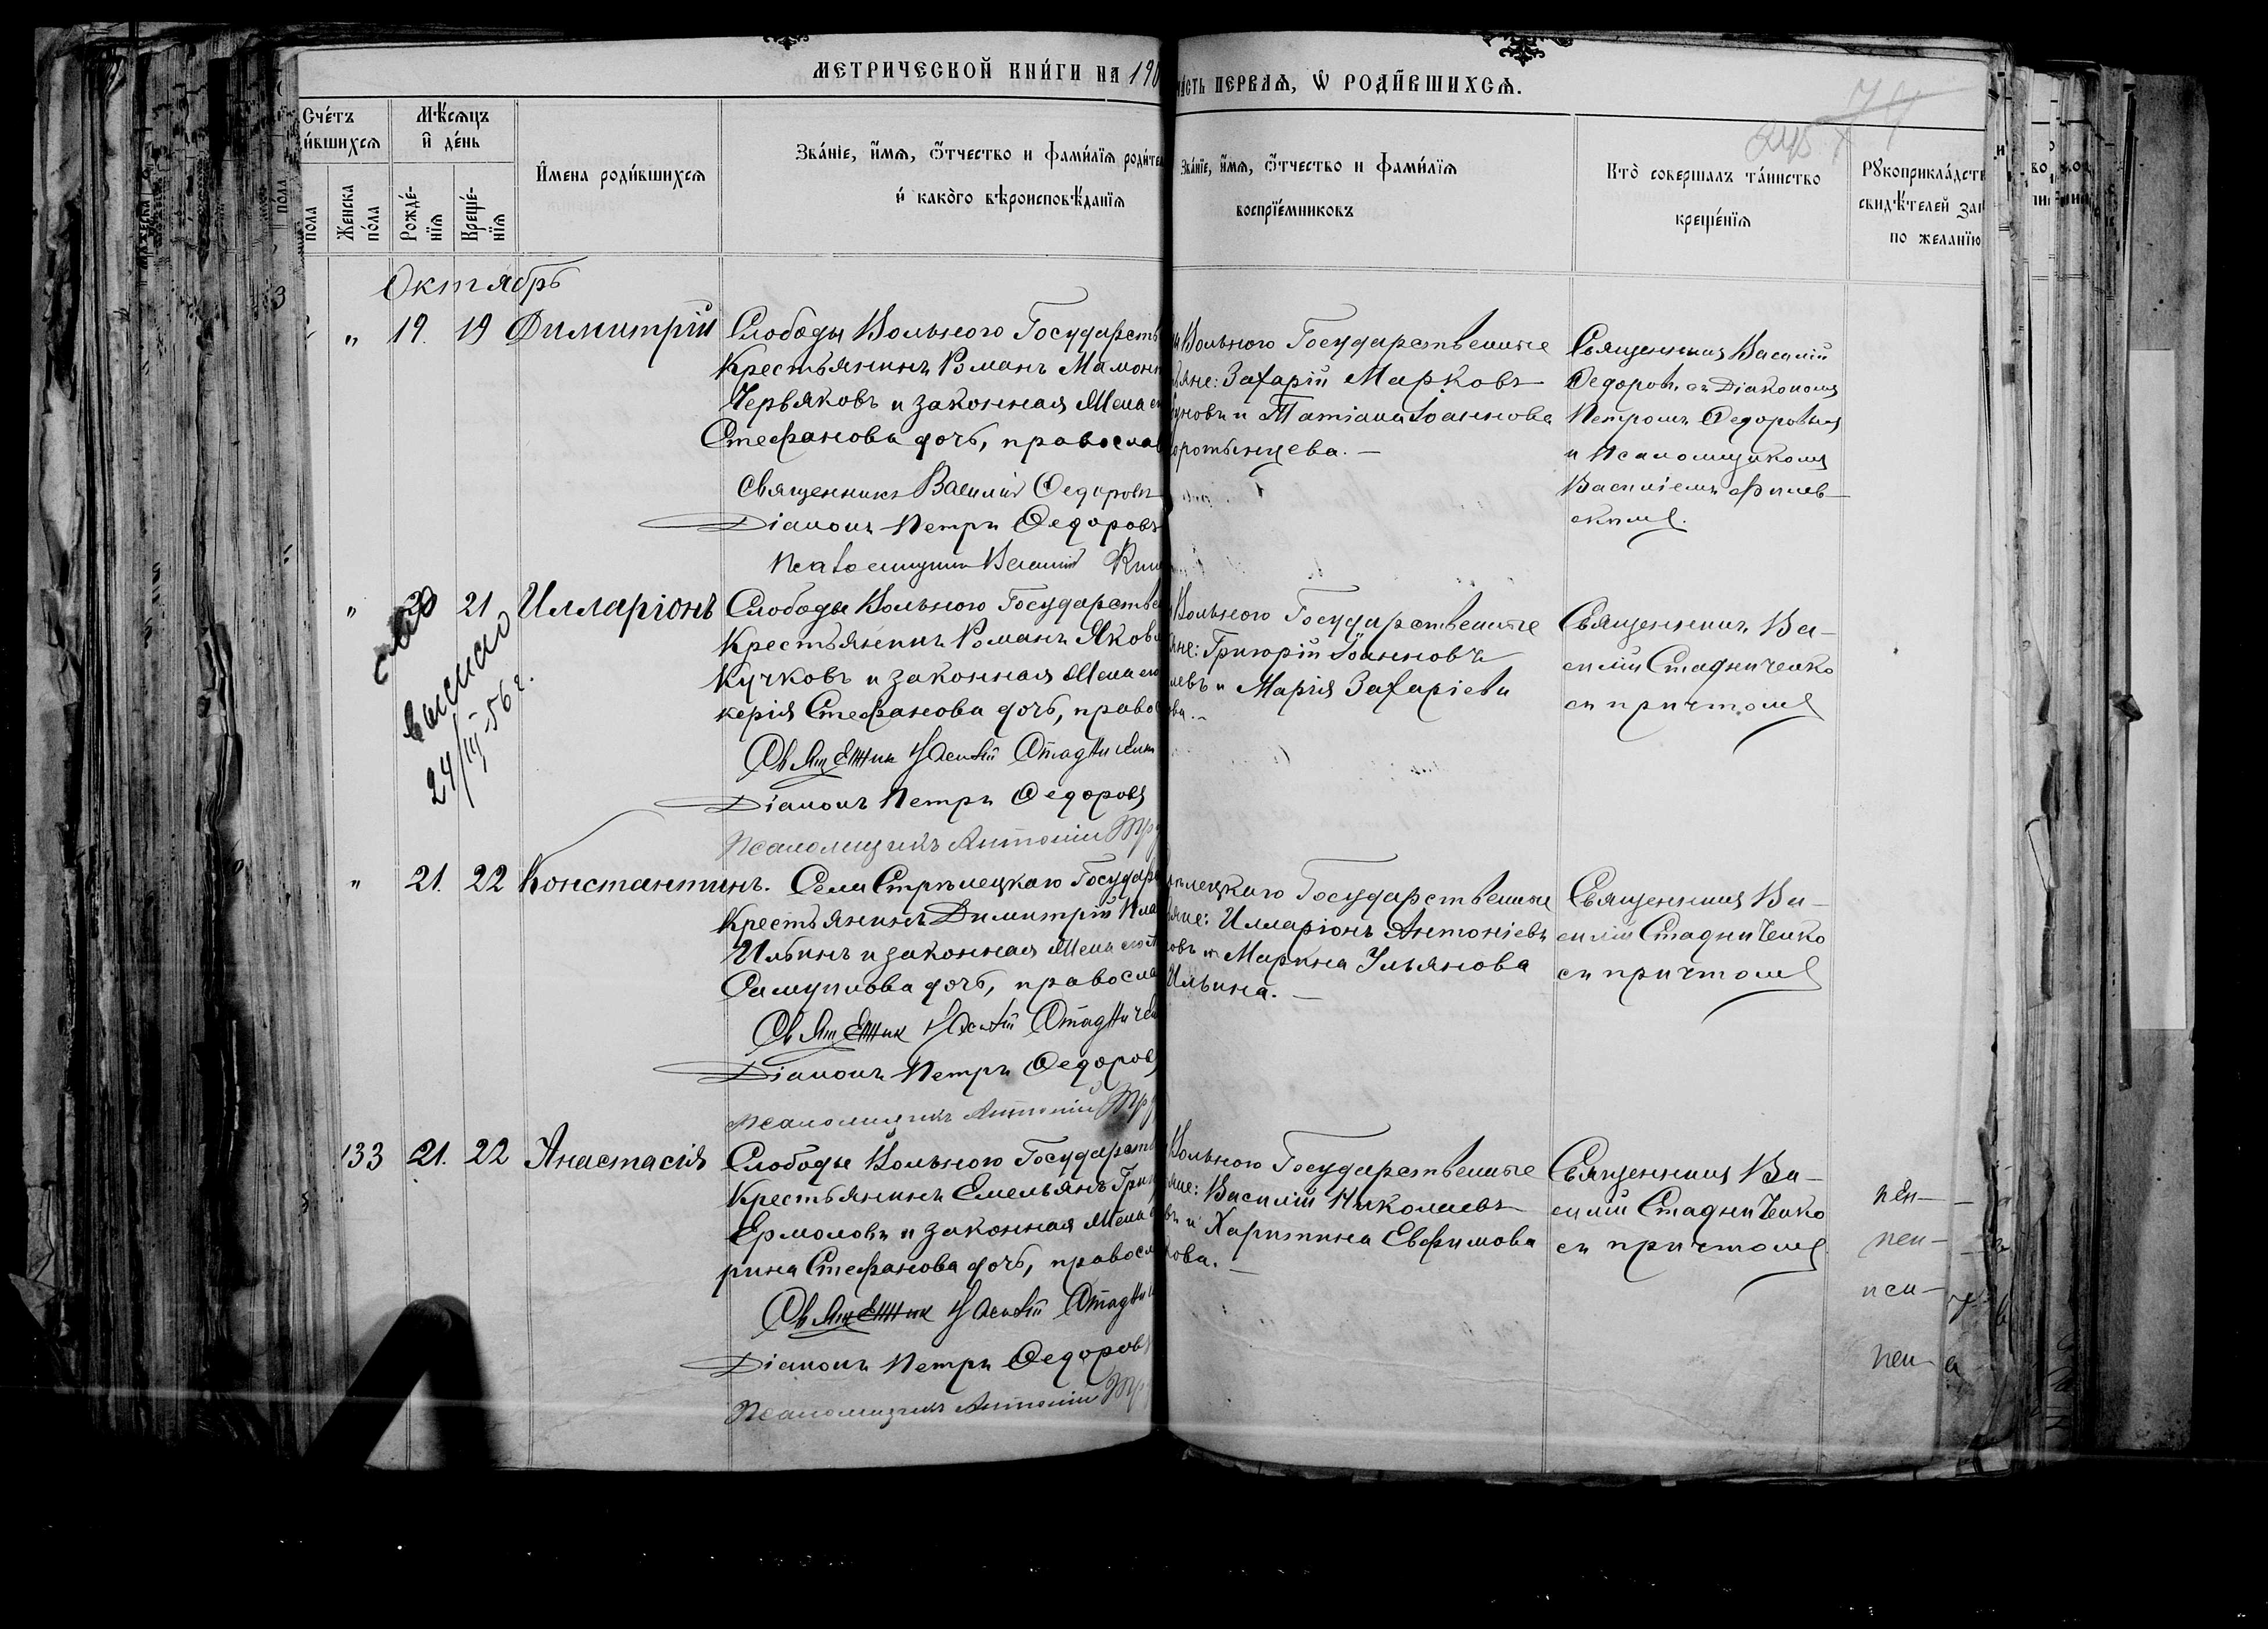 МЕТРИЧЕСКОЙ КНИ́ГИ НА 190
ЧАСТЬ ПЕРВАЯ, Ѡ РОДИ́ВШИХСЯ.
Сче́тъ
и́вшихся
Мѣ́сяцъ
и де́нь
пола
Женска
по́ла
Рожде́-
нїя
Креще́-
нїя
И́мена роди́вшихся
Зва́нїе, и́мя, ѻ́тчество и фами́лїя роди́тел
и како̀го вѣроисповѣ́данїя
Зва́нїе, и́мя, ѻ́тчество и фами́лїя
воспрїе́мниковъ
Кто̀ соверша́лъ та́инство
креще́нїя
Рꙋкоприкла́дств
свидѣ́телей зап
по жела́нїю
Октябрь
" 19. 19 Димитрій
Слободы Вольного Государств
Крестьянинъ Романъ Мамон
Червяковъ и законная Жена е
Стефанова дочь, православ
Священникъ Василій Ѳедоровъ
Діаконъ Петръ Ѳедоровъ
Псаломщикъ Василій
Вольного Государственные
яне: Захарій Марковъ
уновъ и Татіана Іоаннова
оротынцева. —
Священникъ Василій
Ѳедоровъ съ Діакономъ
Петромъ Ѳедоровымъ
и Псаломщикомъ
Василіемъ
скимъ.
" 20 21 Илларіонъ
выслано
24/III-56 г.
Слободы Вольного Государстве
Крестьянинъ Романъ Яковл
Кучковъ и законная Жена его
керія Стефанова дочь, правос
Священник Василій Стадничен
Діаконъ Петръ Ѳедоровъ
Псаломщикъ Антоній Тру
Вольного Государственные
яне: Григорій Іоанновъ
левъ и Марія Захаріева
ова. —
Священникъ Ва-
силій Стадниченко
съ причтомъ
" 21. 22 Константинъ.
Села Стрѣлецкаго Государ
Крестьянинъ Димитрій
Ильинъ и законная Жена его
Самуилова дочь, правосла
Священник Василій Стадничен
Діаконъ Петръ Ѳедоровъ
Псаломщикъ Антоній Тру
лецкаго Государственные
яне: Илларіонъ Антоніевъ
овъ и Марина Ульянова
Ильина. —
Священникъ Ва-
силій Стадниченко
съ причтомъ
133 21. 22 Анастасія
Слободы Вольного Государств
Крестьянинъ Емельянъ Григ
Ермоловъ и законная Жена е
рина Стефанова дочь, правосл
Священник Василій Стадни
Діаконъ Петръ Ѳедоровъ
Псаломщикъ Антоній Тру
Вольного Государственные
яне: Василій Николаевъ
въ и Харитина Евфимова
кова. —
Священникъ Ва-
силій Стадниченко
съ причтомъ